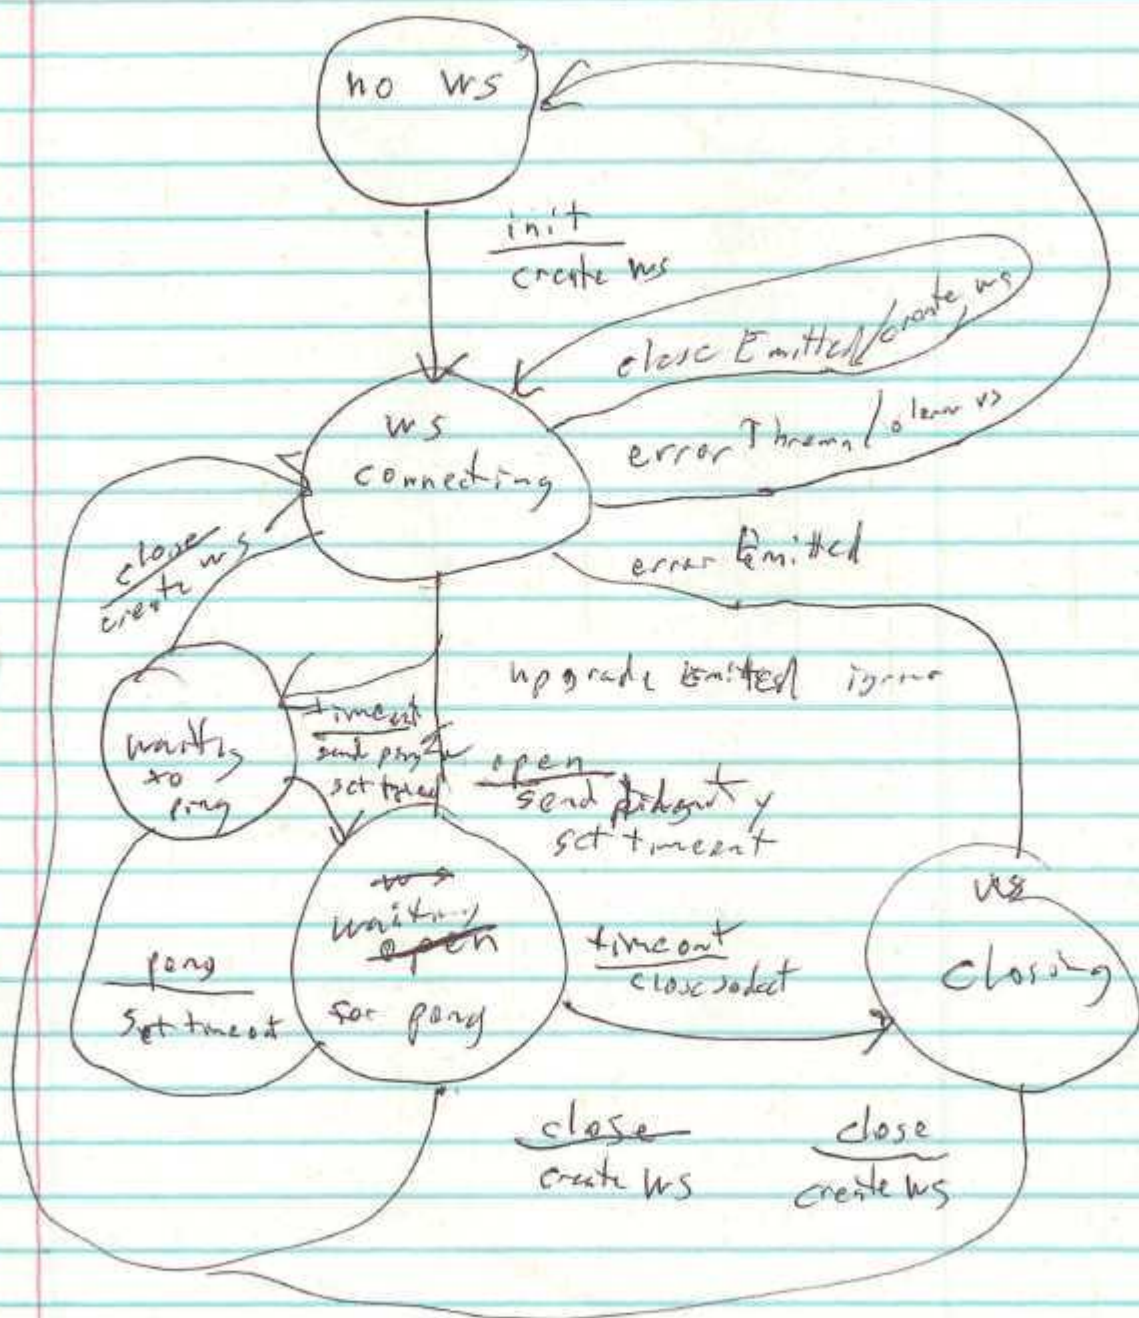 no ws
init
create ws
close Emitted/create ws
error Thrown/
ws
connecting
error Emitted
close
create ws
upgrade Emitted ignore
waiting
to
ping
timeout
send ping
set
open
send
set timeout
ws
waiting
open
for pong
timeout
close socket
ws
closing
pong
set timeout
close
create ws
close
create ws